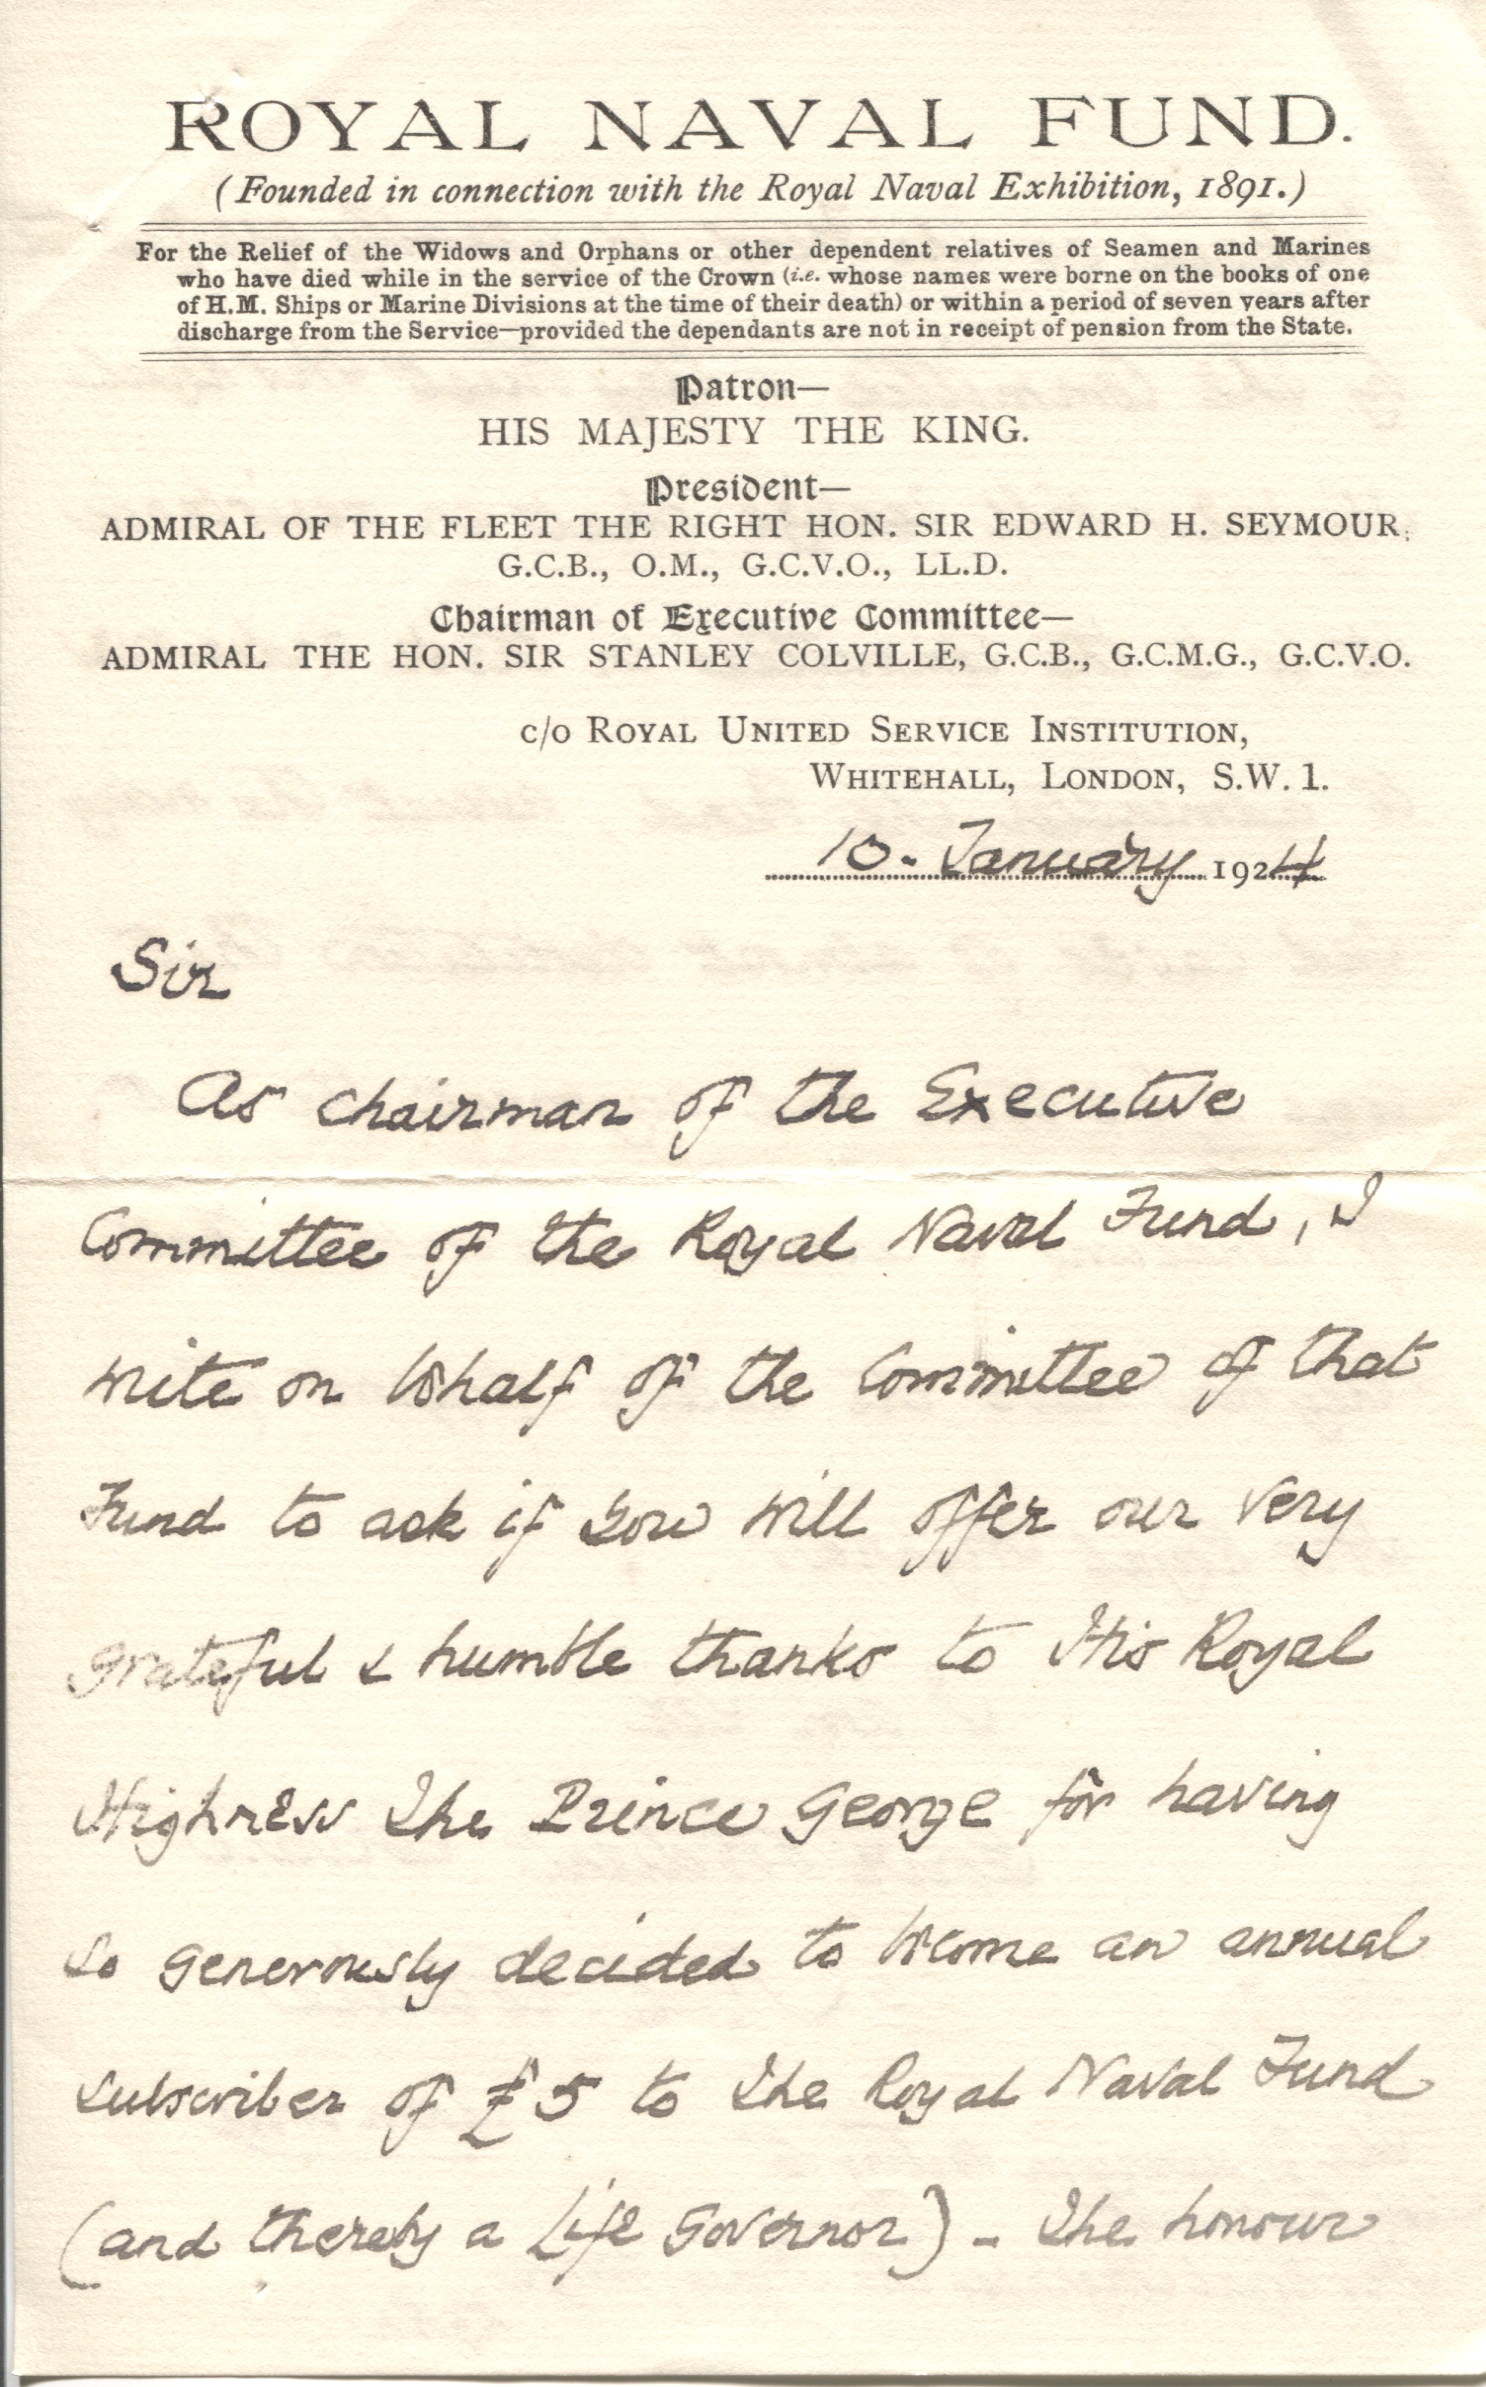 ROYAL NAVAL FUND.
(Founded in connection with the Royal Naval Exhibition, 1891.)
For the Relief of the Widows and Orphans or other dependent relatives of Seamen and Marines
who have died while in the service of the Crown (i.e. whose names were borne on the books of one
of H.M. Ships or Marine Divisions at the time of their death) or within a period of seven years after
discharge from the Service—provided the dependants are not in receipt of pension from the State.
Patron—
HIS MAJESTY THE KING.
President—
ADMIRAL OF THE FLEET THE RIGHT HON. SIR EDWARD H. SEYMOUR,
G.C.B., O.M., G.C.V.O., LL.D.
Chairman of Executive Committee—
ADMIRAL THE HON. SIR STANLEY COLVILLE, G.C.B., G.C.M.G., G.C.V.O.
c/o ROYAL UNITED SERVICE INSTITUTION,
WHITEHALL, LONDON, S.W. 1.
10. January 1924
Sir
As Chairman of the Executive
Committee of the Royal Naval Fund, I
write on behalf of the Committee of that
Fund to ask if you will offer our very
grateful & humble thanks to His Royal
Highness The Prince George for having
so generously decided to become an annual
subscriber of £5 to the Royal Naval Fund
(and thereby a Life Governor) - The honour